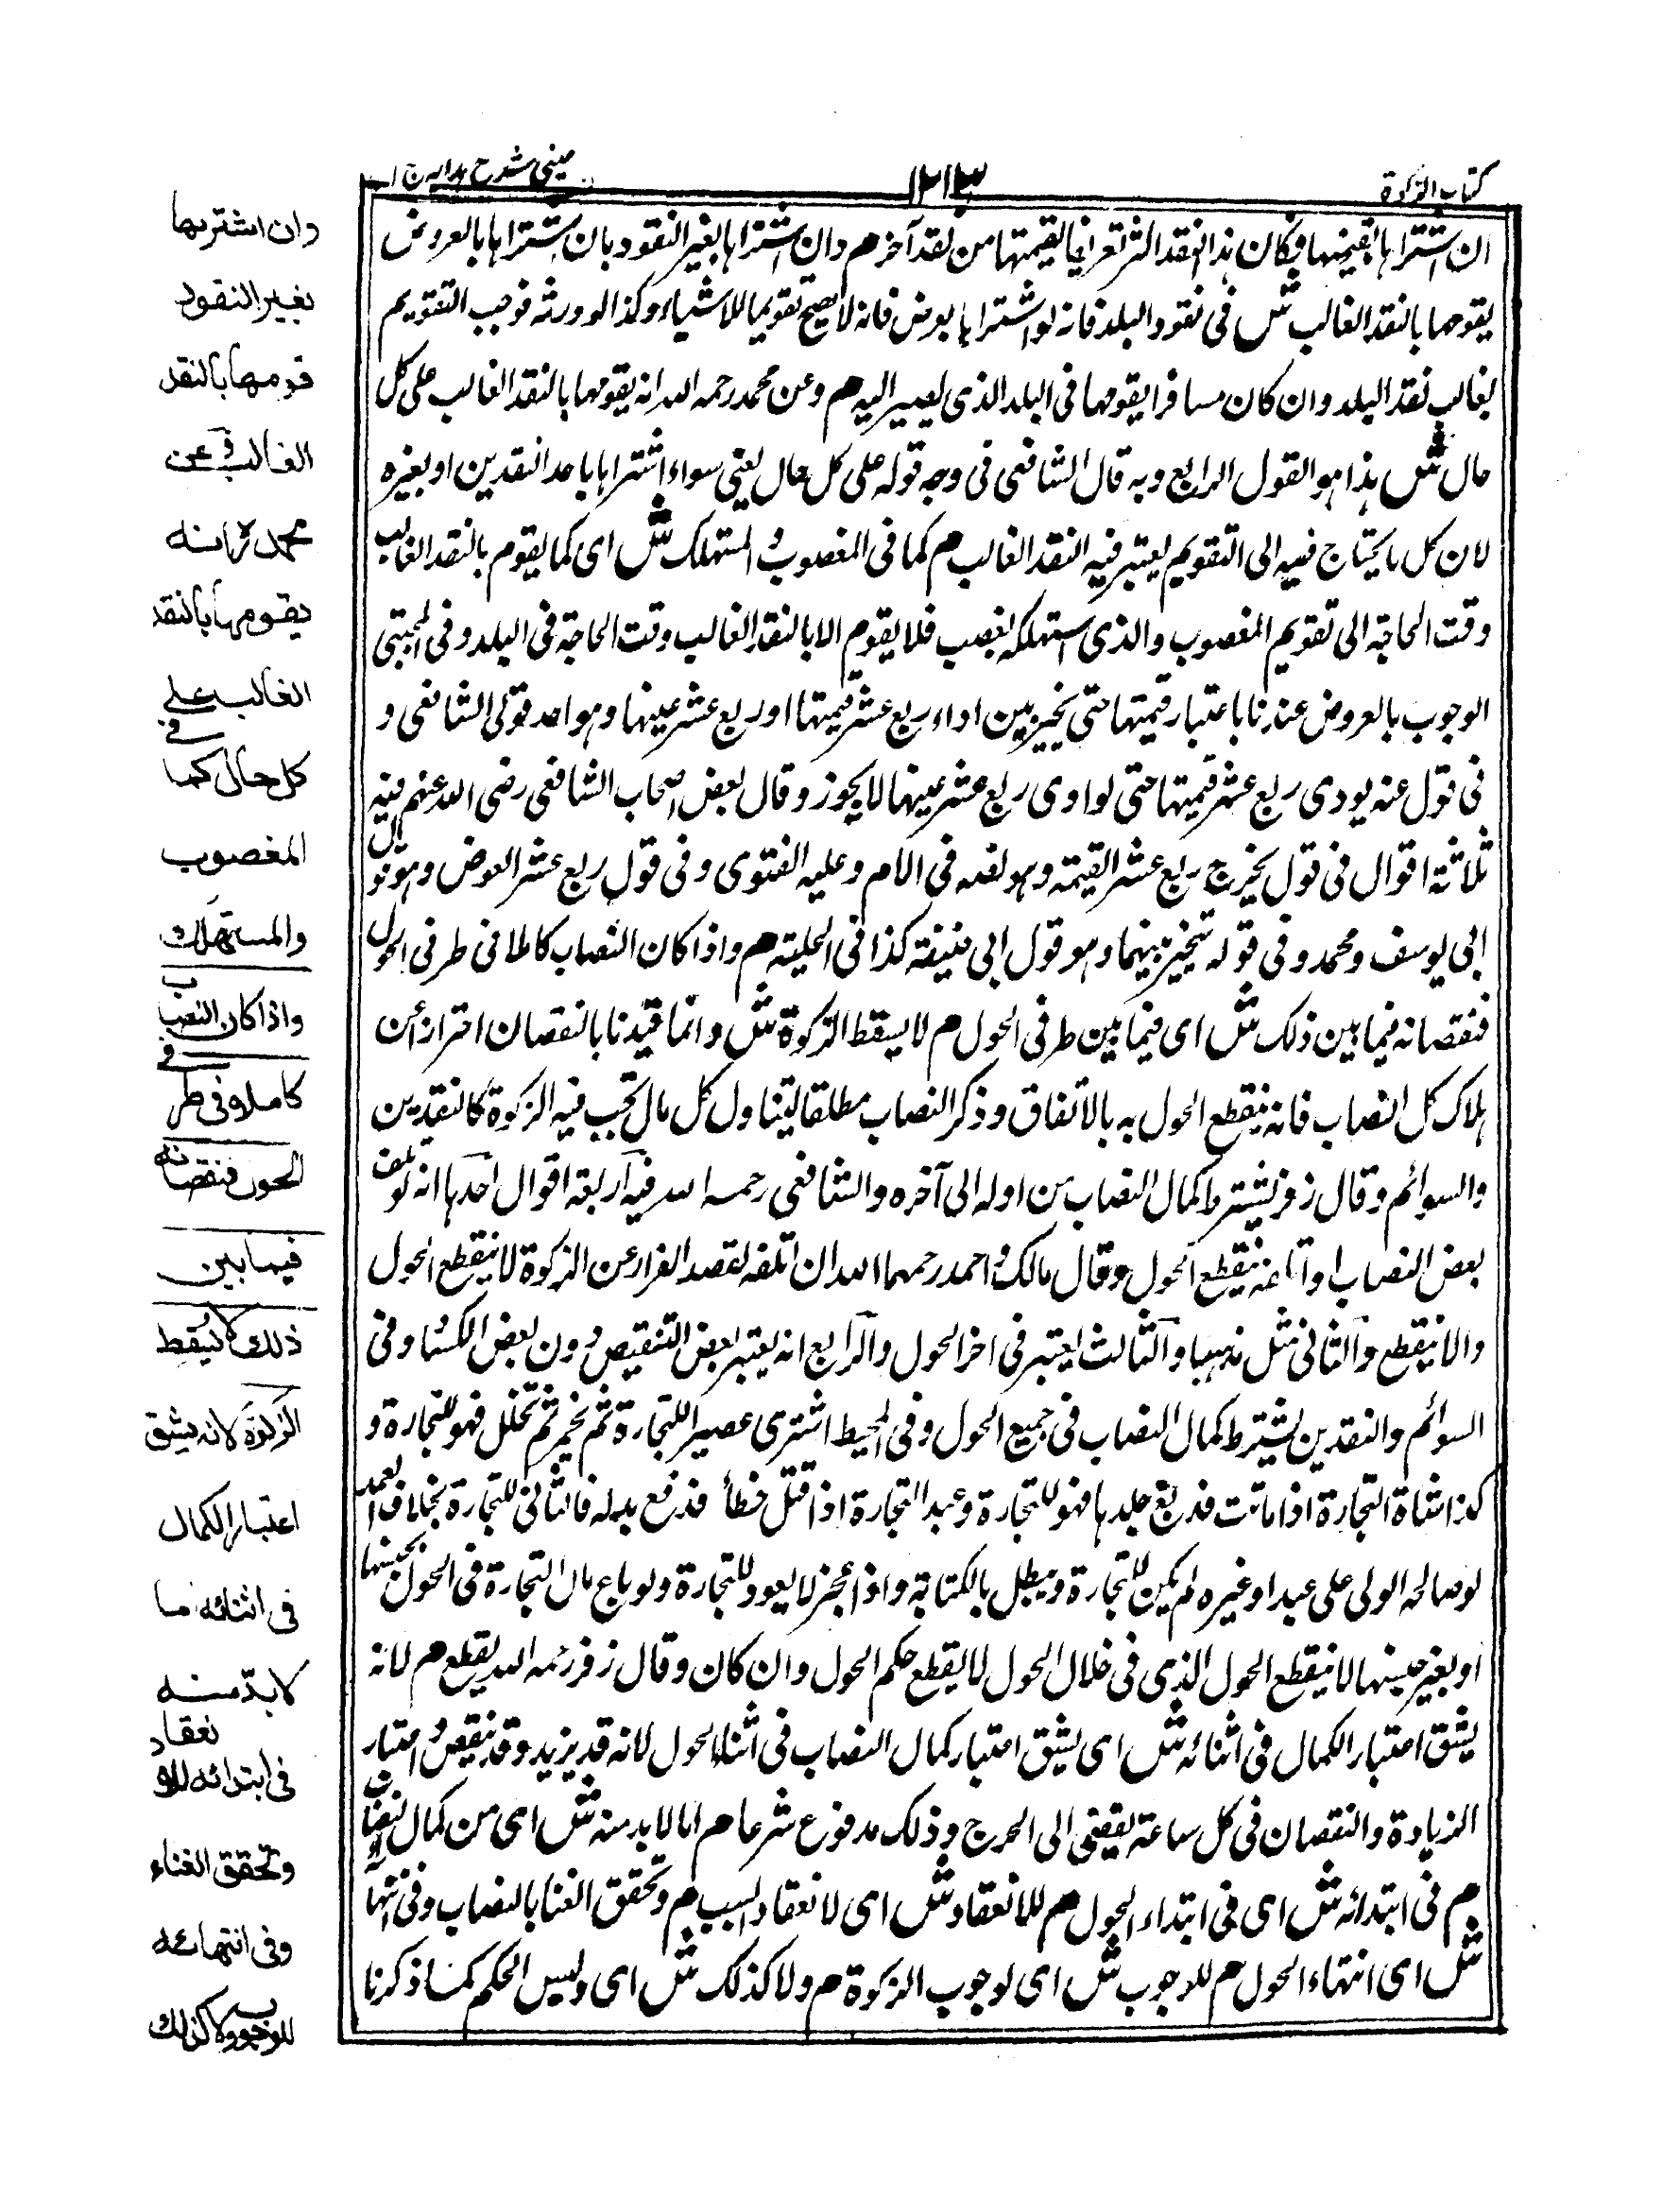 كتاب الزكوة
١٢١٣
عينى شرح هدايه ج ١
ان اشتراها بقيمتها فكان هذا النقد اكثر تعريفا لقيمتها من نقد آخر م وان اشتراها بغير النقود بان اشتراها بالعروض
يقومها بالنقد الغالب ش فى نقود البلد فانه لو اشتراها بعرض فانه لا يصح تقويما للاشياء وكذا لو ورثه فوجب التقويم
بغالب نقد البلد وان كان مسافرا يقومها فى البلد الذى يصير اليه م وعن محمد رحمه الله انه يقومها بالنقد الغالب على كل
حال ش هذا هو القول الرابع وبه قال الشافعى فى وجه قوله على كل حال يعنى سواء اشتراها باحد النقدين او بغيره
لان كل ما يحتاج فيه الى التقويم يعتبر فيه النقد الغالب م كما فى المغصوب والمستهلك ش اى كما يقوم بالنقد الغالب
وقت الحاجة الى تقويم المغصوب والذى استهلكه بغصب فلا يقوم الا بالنقد الغالب وقت الحاجة فى البلد وفى المجتبى
الوجوب بالعروض عندنا باعتبار قيمتها حتى يخير بين اداء ربع عشر قيمتها او ربع عشر عينها وهو احد قولى الشافعى و
فى قول عنه يودى ربع عشر قيمتها حتى لو ادى ربع عشر عينها لا يجوز وقال بعض اصحاب الشافعى رضى الله عنهم فيه
ثلاثة اقوال فى قول يخرج ربع عشر القيمة وهو نصه فى الام وعليه الفتوى وفى قول ربع عشر العرض وهو قول
ابى يوسف ومحمد وفى قوله يتخير بينهما وهو قول ابى حنيفة كذا فى الحلية م واذا كان النصاب كاملا فى طرفى الحول
فنقصانه فيما بين ذلك ش اى فيما بين طرفى الحول م لا يسقط الزكوة ش وانما قيدنا بالنقصان احترازا عن
هلاك كل النصاب فانه ينقطع الحول به بالاتفاق وذكر النصاب مطلقا ليتناول كل مال تجب فيه الزكوة كالنقدين
والسوائم وقال زفر يشترط كمال النصاب من اوله الى آخره والشافعى رحمه الله فيه اربعة اقوال احدها انه لو تلف
بعض النصاب او باعه ينقطع الحول وقال مالك واحمد رحمهما الله ان اتلفه لقصد الفرار عن الزكوة لا ينقطع الحول
والا ينقطع والثانى مثل مذهبنا والثالث يعتبر فى اخر الحول والرابع انه يعتبر بعض التنقيص دون بعض وفى
السوائم والنقدين يشترط كمال النصاب فى جميع الحول وفى المحيط اشترى عصيرا للتجارة ثم تخمر ثم تخلل فهو للتجارة و
كذا شاة التجارة اذا ماتت فدبغ جلدها فهو للتجارة وعبد التجارة اذا قتل خطأ فدفع بدله فالثانى للتجارة بخلاف العمد
لو صالحه الولى على عبد او غيره لم يكن للتجارة ويبطل بالكتابة واذا عجز لا يعود للتجارة ولو باع مال التجارة فى الحول بجنسها
او بغير جنسها لا ينقطع الحول الذى فى خلال الحول لا يقطع حكم الحول وان كان وقال زفر رحمه الله يقطع م لانه
يشق اعتبار الكمال فى اثنائه ش اى يشق اعتبار كمال النصاب فى اثناء الحول لانه قد يزيد وقد ينقص واعتبار
الزيادة والنقصان فى كل ساعة يفضى الى الحرج وذلك مدفوع شرعا م اما لا بد منه ش اى من كمال النصاب
م فى ابتدائه ش اى فى ابتداء الحول م للانعقاد ش اى لانعقاد السبب م وتحقق الغنا بالنصاب وفى انتهائه
ش اى انتهاء الحول م للوجوب ش اى لوجوب الزكوة م ولا كذلك ش اى وليس الحكم كما ذكرنا
وان اشتريها
بغير النقود
قومها بالنقد
الغالب وعن
محمد انه
يقومها بالنقد
الغالب على
كل حال كما فى
المغصوب
والمستهلك
واذا كان النصاب
كاملا فى طرفى
الحول فنقصانه
فيما بين
ذلك لا يسقط
الزكوة لانه يشق
اعتبار الكمال
فى اثنائه ما
لا بد منه
فى ابتدائه للانعقاد
وتحقق الغناء
وفى انتهائه
للوجوب ولا كذلك